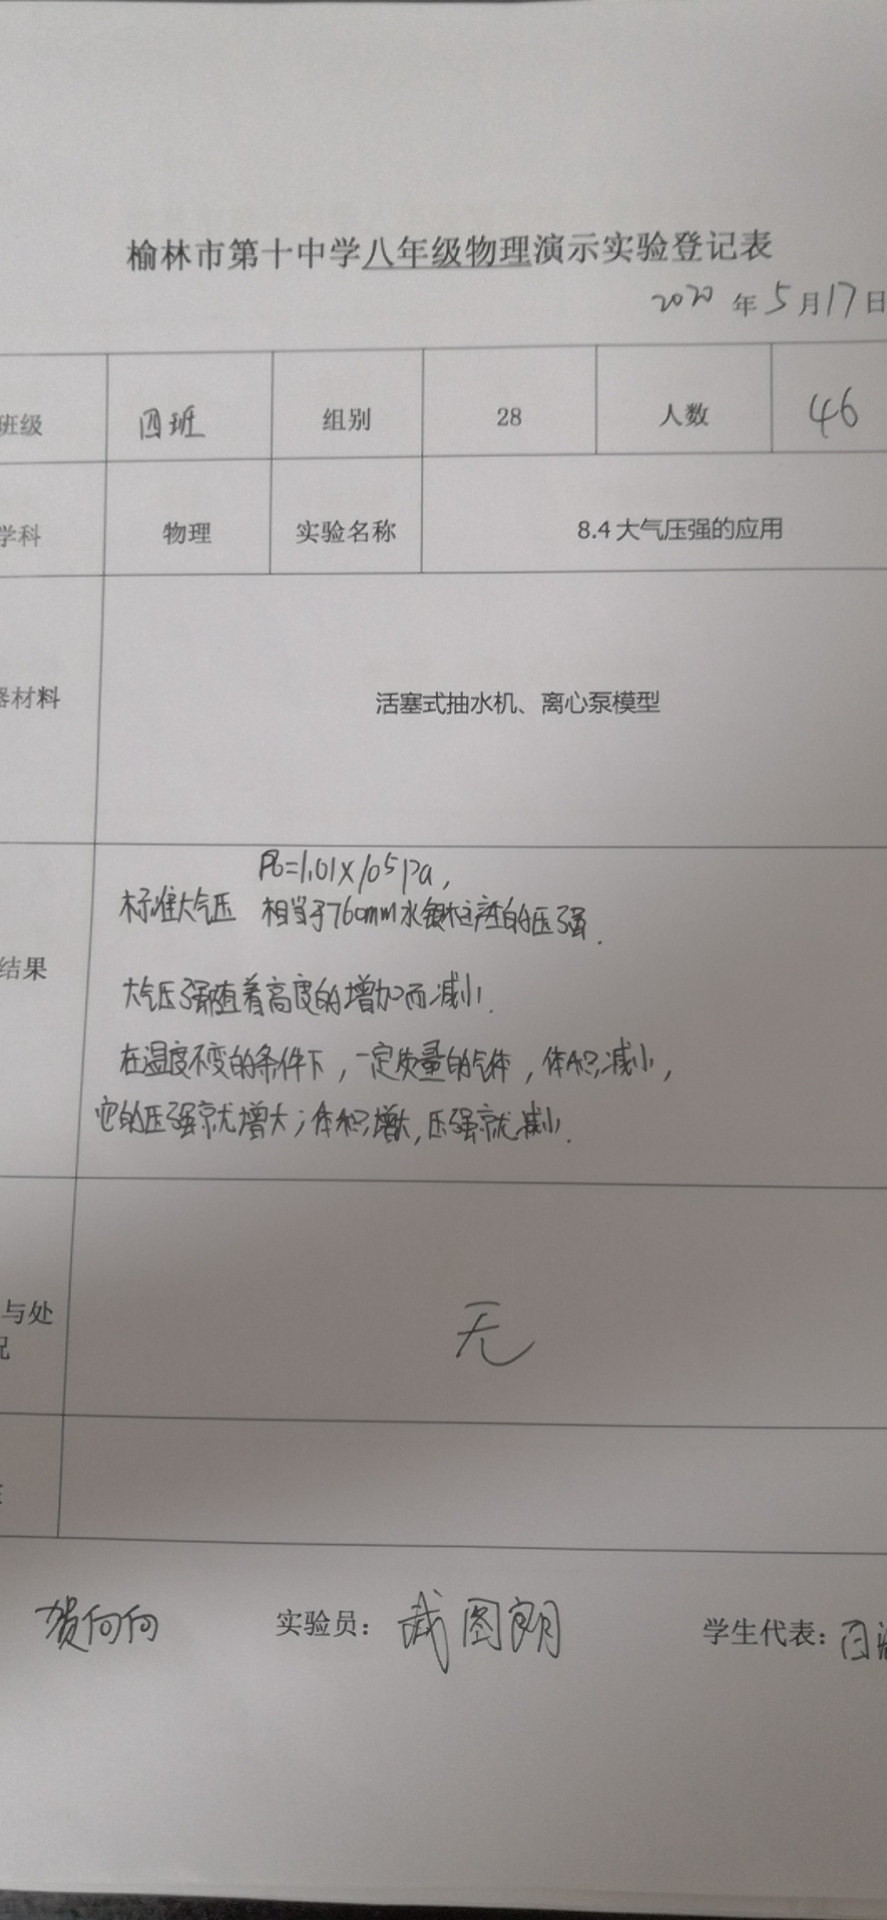 榆林市第十中学八年级物理演示实验登记表
2020年5月17日
班级 四班 组别 28 人数 46
学科 物理 实验名称 8.4大气压强的应用
器材料 活塞式抽水机、离心泵模型
P0=1.01×10^5Pa,
标准大气压 相当于760mm水银柱产生的压强.
结果
大气压强随着高度的增加而减小.
在温度不变的条件下,一定质量的气体,体积减小,
它的压强就增大;体积增大,压强就减小.
与处
况 无
贺向向 实验员: 图朗 学生代表: 白